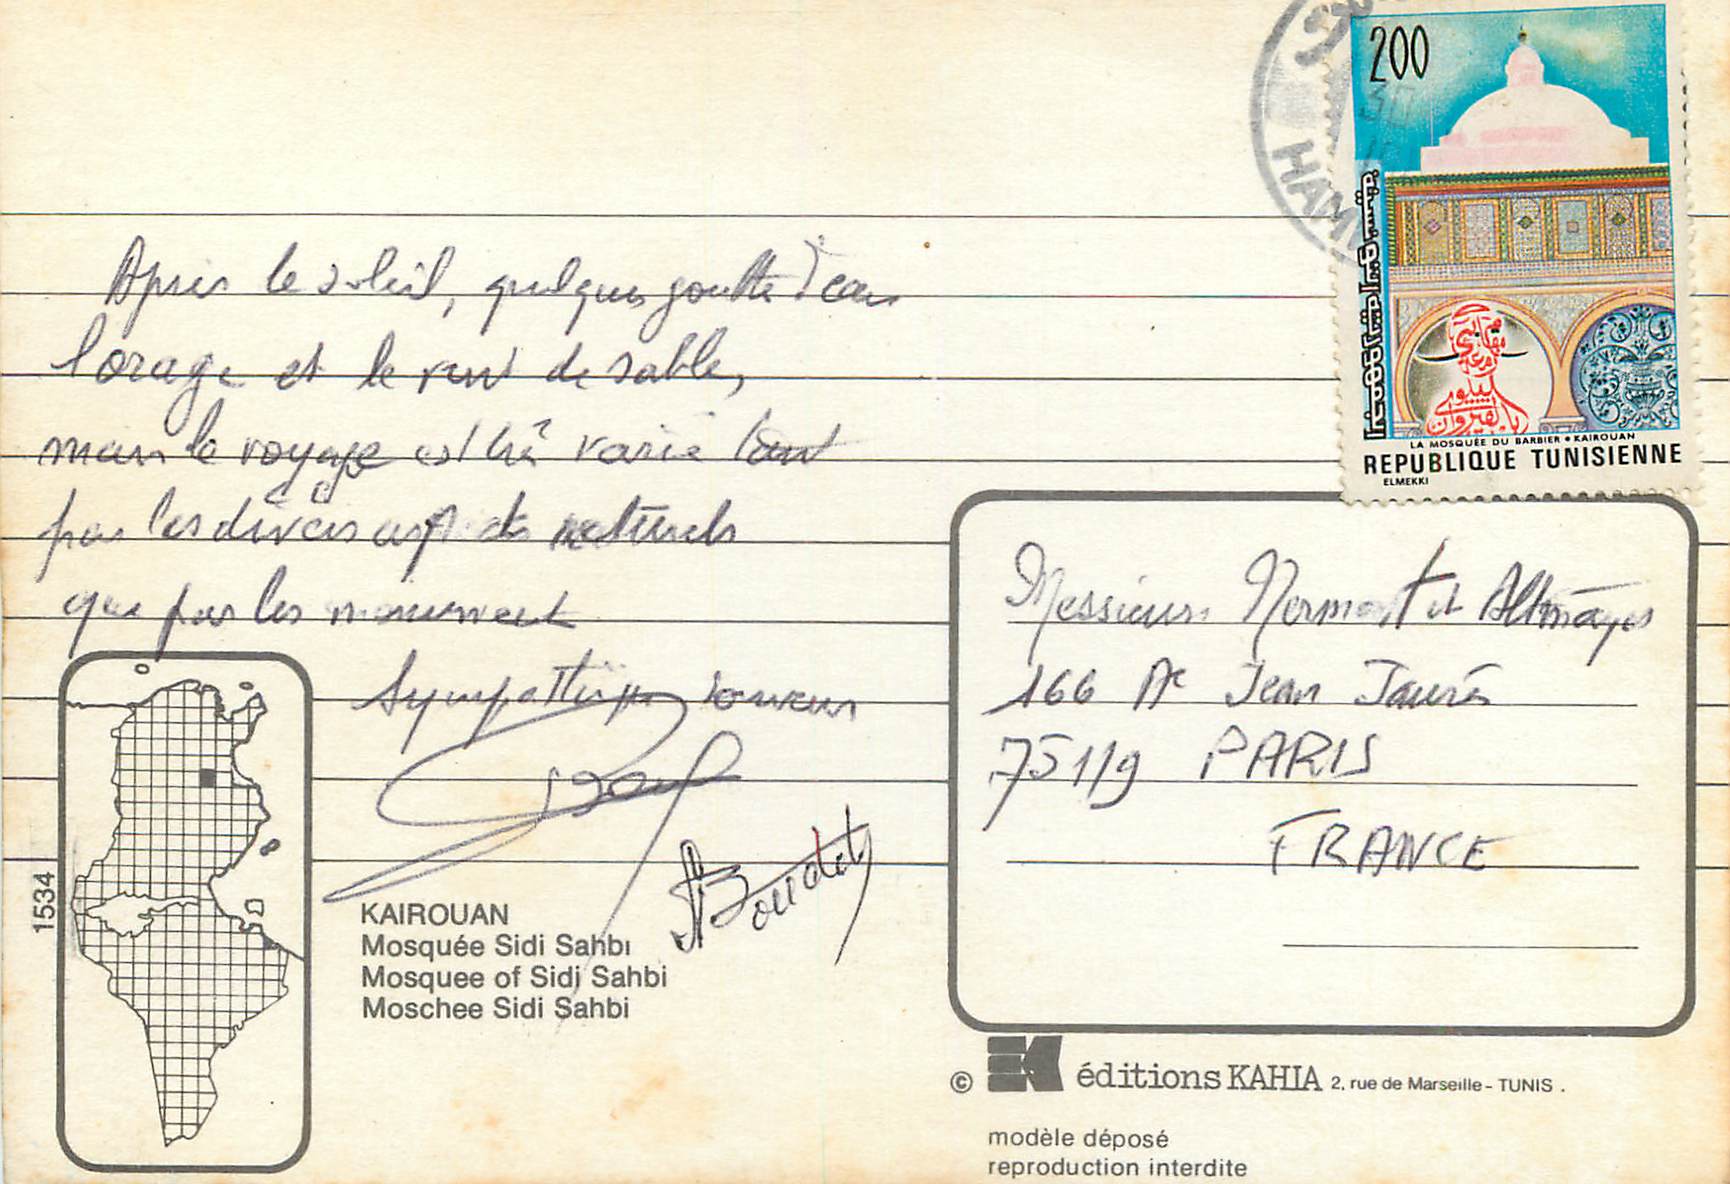 Après le soleil, quelques goutte d'eau
l'orage et le vent de sable,
mais le voyage est très varié tant
par les divers aspects naturels
que par les monument
Sympathique souvenir
Boudet
KAIROUAN
Mosquée Sidi Sahbi
Mosquee of Sidi Sahbi
Moschee Sidi Sahbi
1534
200
HAMM
LA MOSQUÉE DU BARBIER • KAIROUAN
REPUBLIQUE TUNISIENNE
ELMEKKI
Messieurs Mermont et Altmayer
166 Ae Jean Jaurès
75119 PARIS
FRANCE
© éditions KAHIA 2, rue de Marseille - TUNIS .
modèle déposé
reproduction interdite